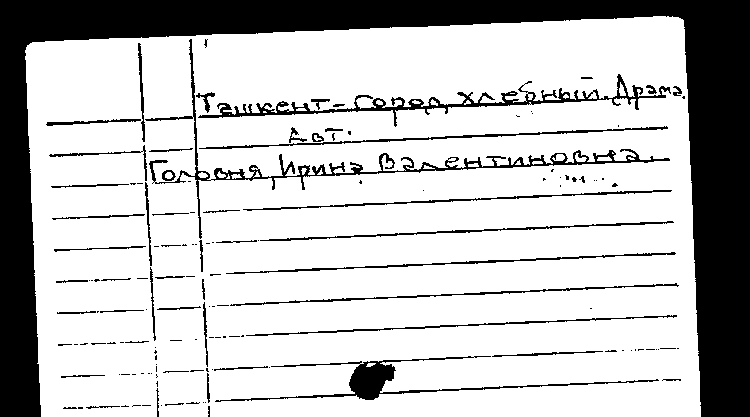 Ташкент - город хлебный. Драма.
Авт.
Головня, Ирина Валентиновна.